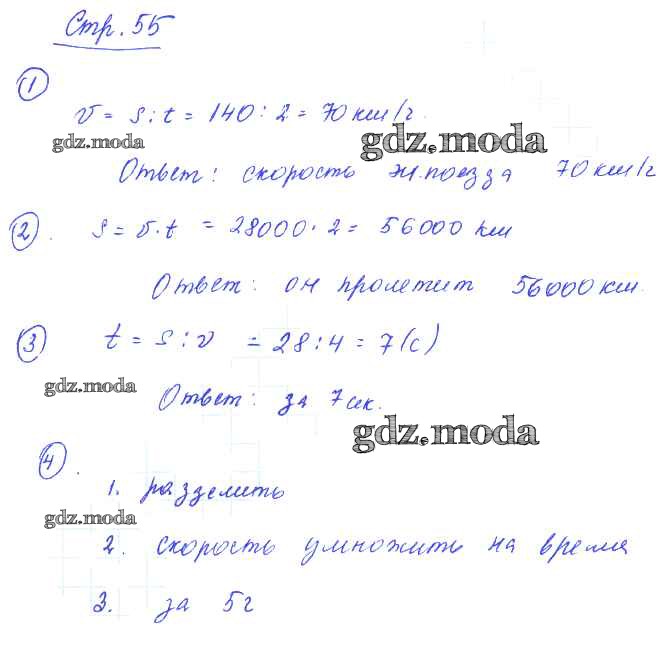 Стр. 55
1
v = s : t = 140 : 2 = 70 км/ч.
gdz.moda
gdz.moda
Ответ: скорость ж.поезда 70 км/ч
2. s = v · t = 28000 · 2 = 56000 км
Ответ: он пролетит 56000 км.
3 t = s : v = 28 : 4 = 7 (с)
gdz.moda
Ответ: за 7 сек.
gdz.moda
4.
1. разделить
gdz.moda
2. скорость умножить на время
3. за 5 ч